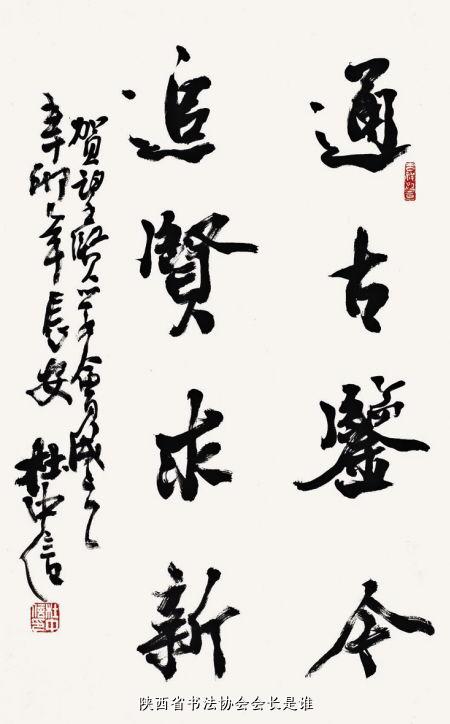 通古鑒今
追賢求新
賀賢會成立
辛卯年長安 杜中信
陕西省书法协会会长是谁